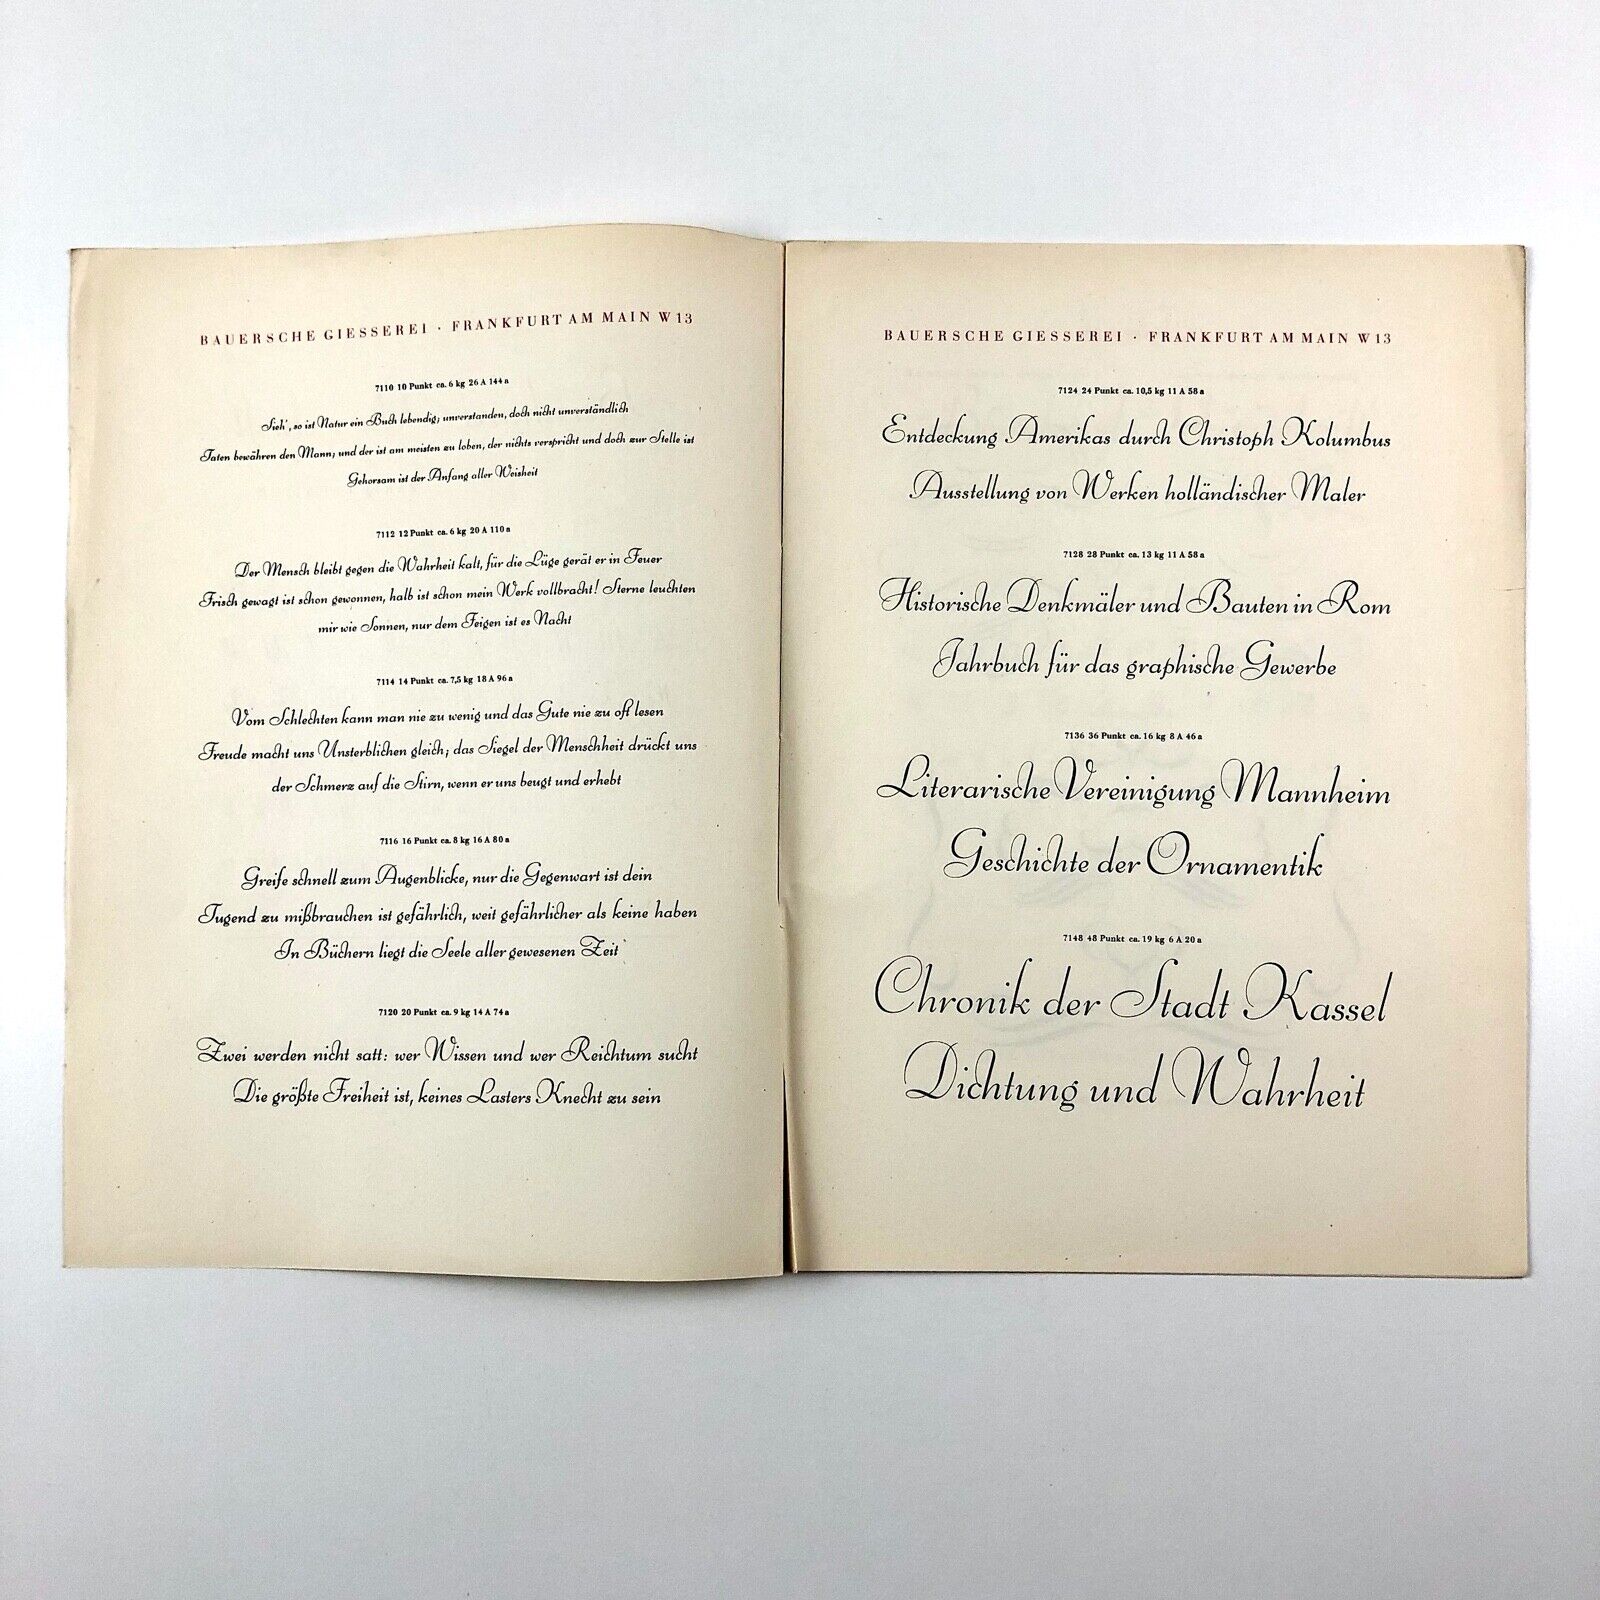 BAUERSCHE GIESSEREI · FRANKFURT AM MAIN W 13
7110 10 Punkt ca. 6 kg 26 A 144 a
Sieh', so ist Natur ein Buch lebendig; unverstanden, doch nicht unverständlich
Taten bewähren den Mann; und der ist am meisten zu loben, der nichts verspricht und doch zur Stelle ist
Gehorsam ist der Anfang aller Weisheit
7112 12 Punkt ca. 6 kg 20 A 110 a
Der Mensch bleibt gegen die Wahrheit kalt, für die Lüge gerät er in Feuer
Frisch gewagt ist schon gewonnen, halb ist schon mein Werk vollbracht! Sterne leuchten
mir wie Sonnen, nur dem Feigen ist es Nacht
7114 14 Punkt ca. 7,5 kg 18 A 96 a
Vom Schlechten kann man nie zu wenig und das Gute nie zu oft lesen
Freude macht uns Unsterblichen gleich; das Siegel der Menschheit drückt uns
der Schmerz auf die Stirn, wenn er uns beugt und erhebt
7116 16 Punkt ca. 8 kg 16 A 80 a
Greife schnell zum Augenblicke, nur die Gegenwart ist dein
Tugend zu mißbrauchen ist gefährlich, weit gefährlicher als keine haben
In Büchern liegt die Seele aller gewesenen Zeit
7120 20 Punkt ca. 9 kg 14 A 74 a
Zwei werden nicht satt: wer Wissen und wer Reichtum sucht
Die größte Freiheit ist, keines Lasters Knecht zu sein
BAUERSCHE GIESSEREI · FRANKFURT AM MAIN W 13
7124 24 Punkt ca. 10,5 kg 11 A 58 a
Entdeckung Amerikas durch Christoph Kolumbus
Ausstellung von Werken holländischer Maler
7128 28 Punkt ca. 13 kg 11 A 58 a
Historische Denkmäler und Bauten in Rom
Jahrbuch für das graphische Gewerbe
7136 36 Punkt ca. 16 kg 8 A 46 a
Literarische Vereinigung Mannheim
Geschichte der Ornamentik
7148 48 Punkt ca. 19 kg 6 A 20 a
Chronik der Stadt Kassel
Dichtung und Wahrheit